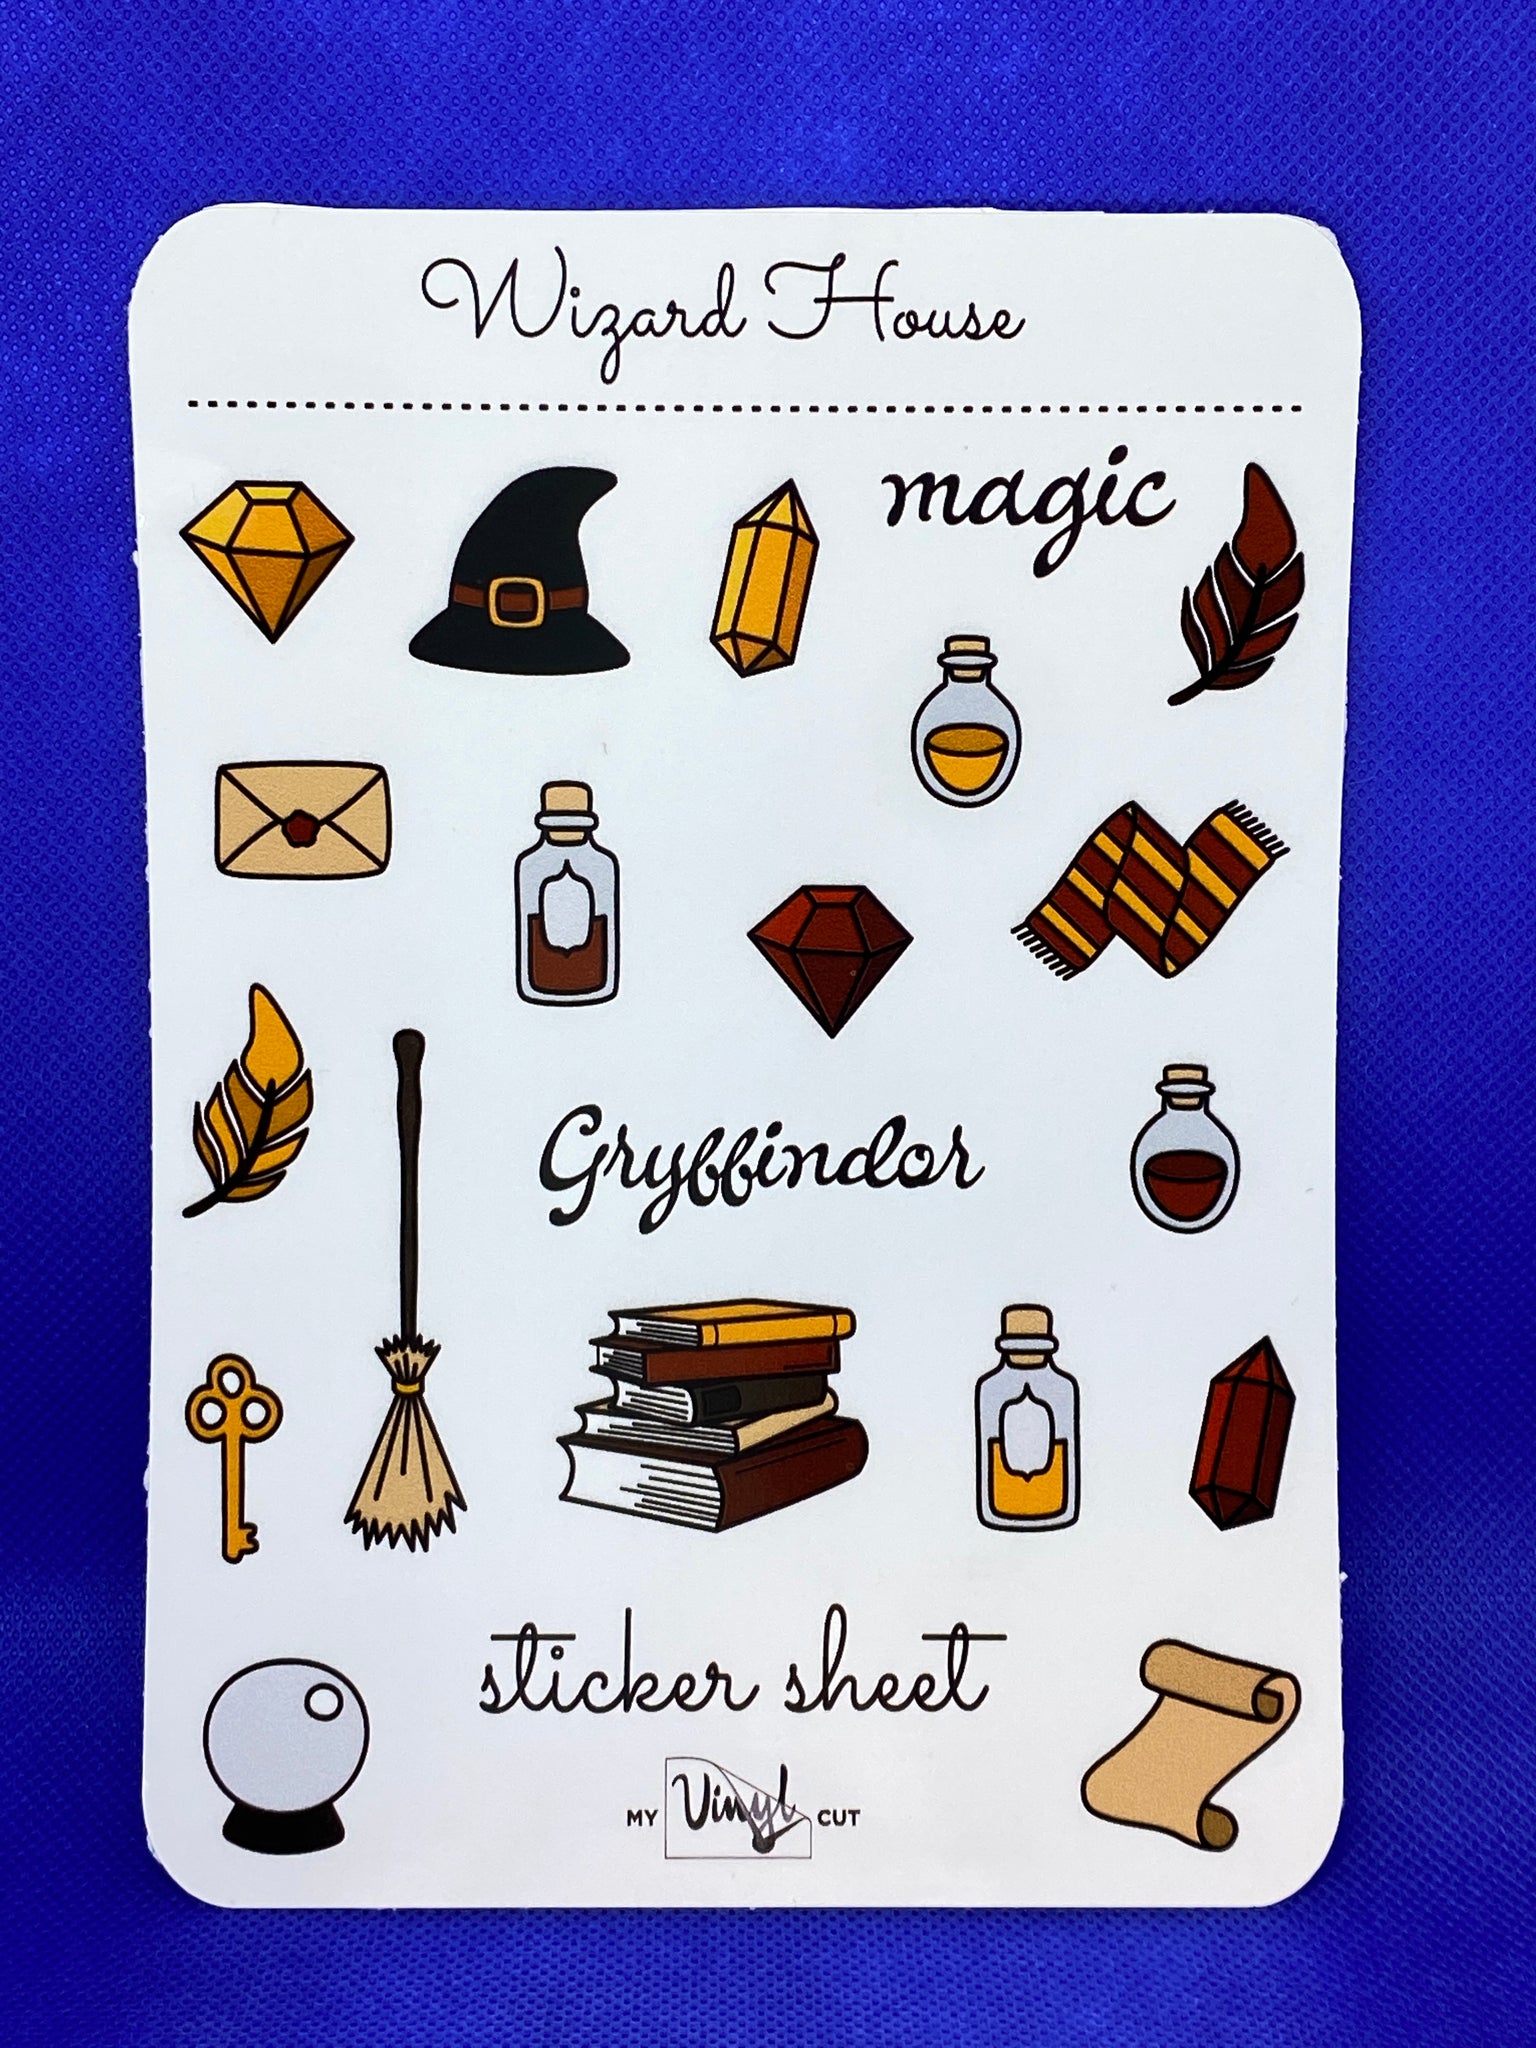 Wizard House
magic
Gryffindor
sticker sheet
MY Vinyl CUT